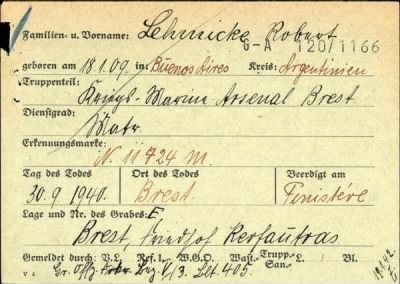 Familien- u. Vorname: Lehmicke Robert
G-A 120/1166
geboren am 18.1.09. in: Buenos Aires Kreis: Argentinien
Truppenteil:
Kriegs-Marine-Arsenal Brest
Dienstgrad:
Matr.
Erkennungsmarke:
N. 11724 M.
Tag des Todes Ort des Todes Beerdigt am
30.9.1940. Brest Finistére
Lage und Nr. des Grabes: F,
Brest, Friedhof Kerfautras
Gemeldet durch: V.L. Ref.I. W.G.O. Wast. Trupp. L. Bl.
San.
Gr. Offz. Bez. V/3. Lst. 405.